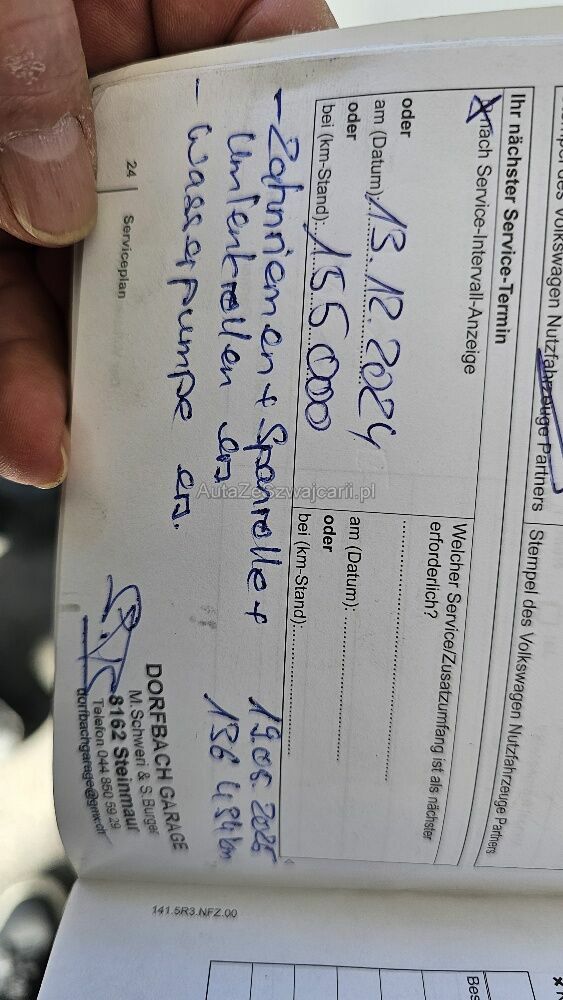 Volkswagen Nutzfahrzeuge Partners
Stempel des Volkswagen Nutzfahrzeuge Partners
Ihr nächster Service-Termin
nach Service-Intervall-Anzeige
oder
am (Datum): 13.12.2024
oder
bei (km-Stand): 155.000
Welcher Service/Zusatzumfang ist als nächster
erforderlich?
am (Datum):
oder
bei (km-Stand):
- Zahnriemen + Spanrolle +
Umlenkrollen ers.
- Wasserpumpe ers.
136 494 km
DORFBACH GARAGE
M. Schweri & S. Burger
8162 Steinmaur
Telefon 044 850 59 29
dorfbachgarage@gmx.ch
24 Serviceplan
141.5R3.NFZ.00
Bes
AutaZeSzwajcarii.pl